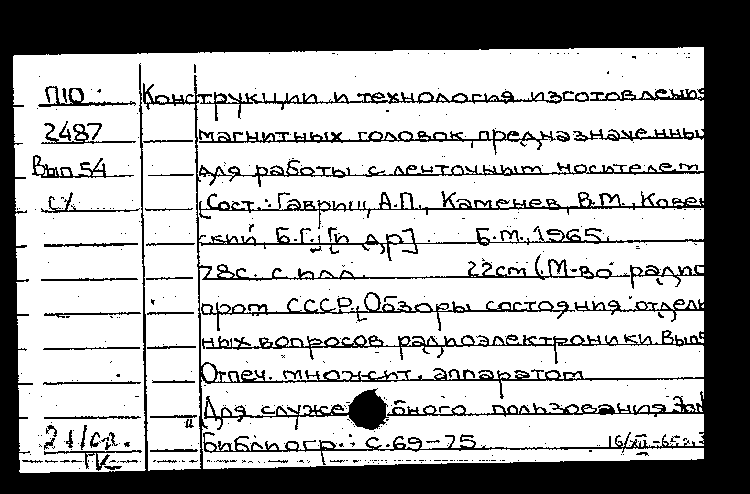 П10 Конструкции и технология изготовления
2487 магнитных головок, предназначенных
Вып 54 для работы с ленточным носителем
сх [Сост.: Гавриш, А.П., Каменев, В.М., Ковен
ский, Б.Г.; [и др.] Б.м., 1965.
78с. с илл. 22cm (М-во радио
пром СССР. Обзоры состояния отдель
ных вопросов радиоэлектроники. Вып 5
Отпеч. множит. аппаратом
"Для служебного пользования" Экз
библиогр.: с. 69-75. 16/XII-65г.